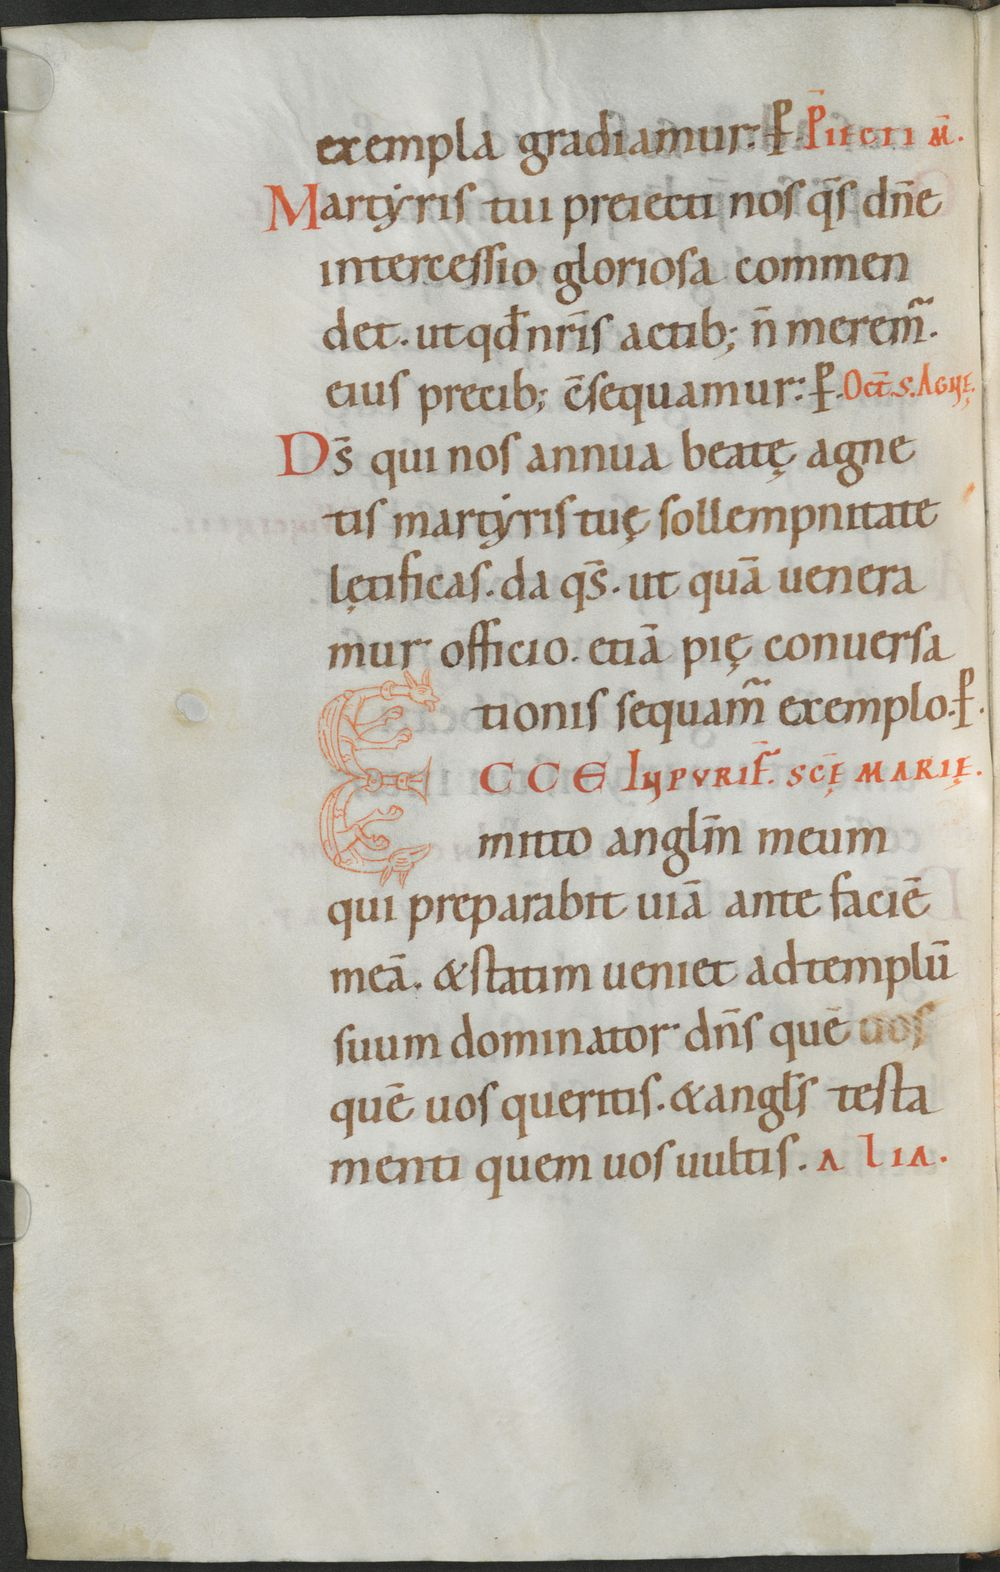 exempla gradiamur: ꝑ. P̄iecti m̄.
Martẏris tui preiecti nos q̄s dn̄e
intercessio gloriosa commen
det. ut qđ nr̄is actib; n̄ merem̃.
eius precib; c̄sequamur: ꝑ. Oct̄. S. Agnę.
Ds̄ qui nos annua beatę agne
tis martẏris tuę sollempnitate
lętificas. da q̄s. ut quā uenera
mur officio. etiā pię conuersa
tionis sequam̃ exemplo. ꝑ.
ECCE In purif̄. scę̄ Marię.
mitto anglm̄ meum
qui preparabit uiā ante faciē
meā. & statim ueniet ad templū
suum dominator dn̄s quē uos
quē uos queritis. & angl̄s testa
menti quem uos uultis. Alia.